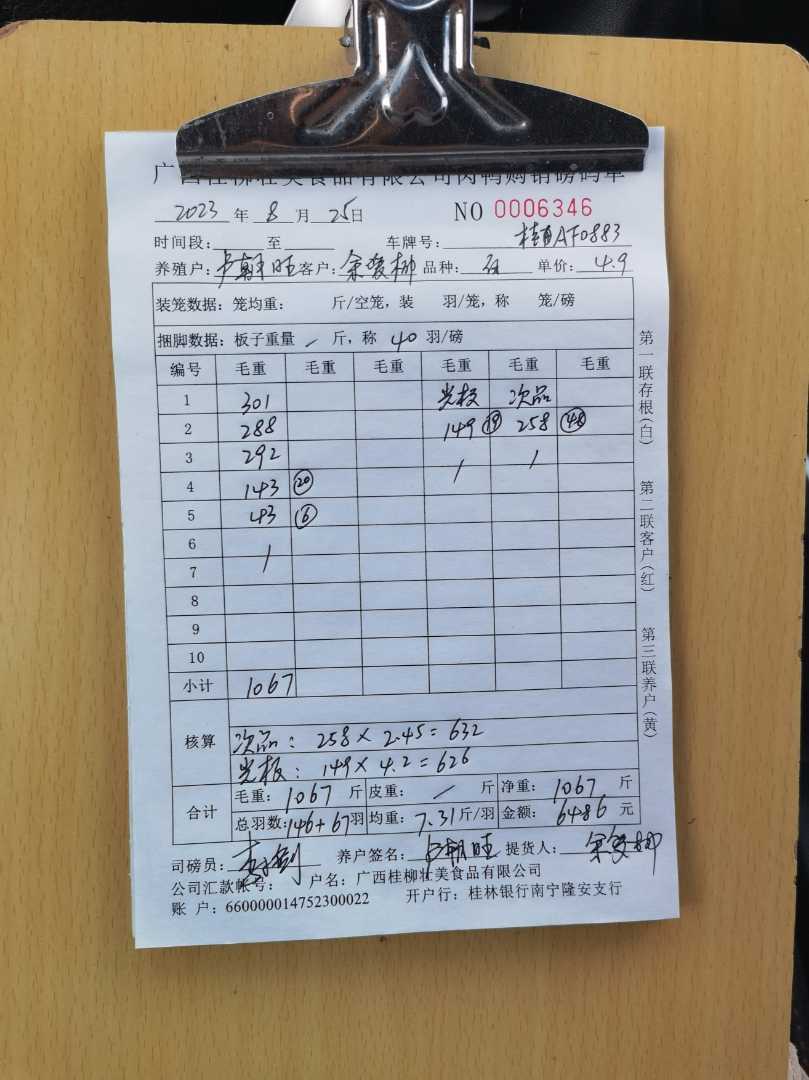 广西桂柳壮美食品有限公司肉鸭购销磅码单
2023 年 8 月 25日 NO 0006346
时间段: 至 车牌号: 桂AF0883
养殖户: 卢朝旺 客户: 品种: 单价: 4.9
装笼数据: 笼均重: 斤/空笼,装 羽/笼,称 笼/磅
捆脚数据: 板子重量 / 斤,称 40 羽/磅
编号 毛重 毛重 毛重 毛重 毛重 毛重
1 301 光板 次品
2 288 149 19 258 48
3 292 / /
4 143 20
5 43 6
6
7 /
8
9
10
小计 1067
核算
次品: 258×2.45=632
光板: 149×4.2=626
合计 毛重: 1067 斤 皮重: / 斤 净重: 1067 斤
总羽数: 146+67羽 均重: 7.31斤/羽 金额: 6486 元
司磅员: 养户签名: 卢朝旺 提货人:
公司汇款帐号: 户名: 广西桂柳壮美食品有限公司
账 户: 660000014752300022 开户行: 桂林银行南宁隆安支行
第一联存根(白)
第二联客户(红)
第三联养户(黄)